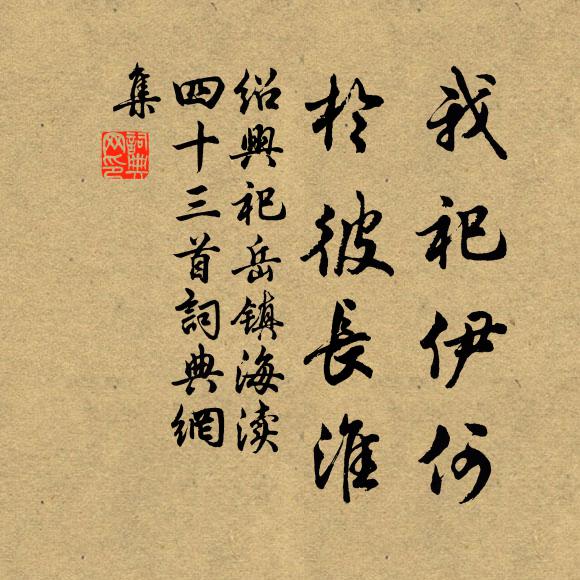 我祀伊何
於彼長淮
绍興祀岳镇海渎
四十三首詞典網
集
詞典
网印